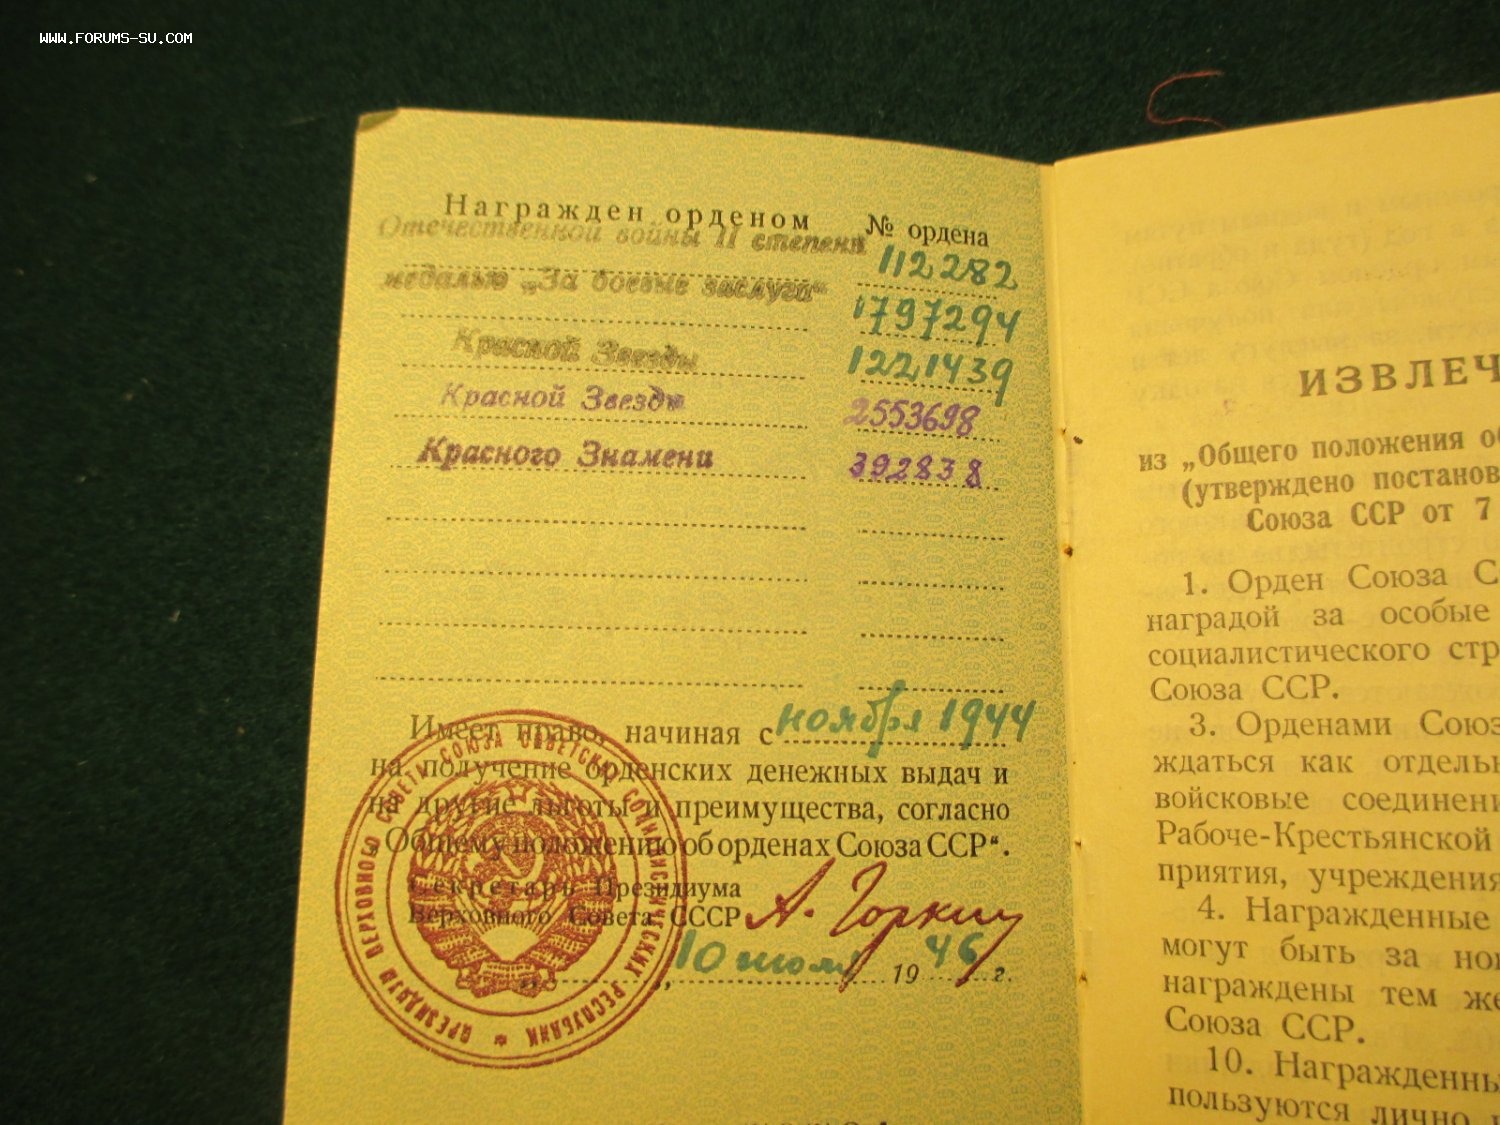 www.forums-su.com
Награжден орденом № ордена
Отечественной войны II степени 112282
медалью „За боевые заслуги“ 1797294
Красной Звезды 1221439
Красной Звезды 2553698
Красного Знамени 392838
Имеет право, начиная с ноября 1944
на получение орденских денежных выдач и
на другие льготы и преимущества, согласно
„Общему положению об орденах Союза ССР“.
Секретарь Президиума
Верховного Совета СССР А. Горкин
10 июля 1946 г.
ПРЕЗИДИУМ ВЕРХОВНОГО СОВЕТА СОЮЗА СОВЕТСКИХ СОЦИАЛИСТИЧЕСКИХ РЕСПУБЛИК
ИЗВЛЕЧ
из „Общего положения об
(утверждено постанов
Союза ССР от 7
1. Орден Союза С
наградой за особые
социалистического стр
Союза ССР.
3. Орденами Союз
ждаться как отдельн
войсковые соединени
Рабоче-Крестьянской
приятия, учреждения
4. Награжденные
могут быть за нов
награждены тем же
Союза ССР.
10. Награжденны
пользуются лично